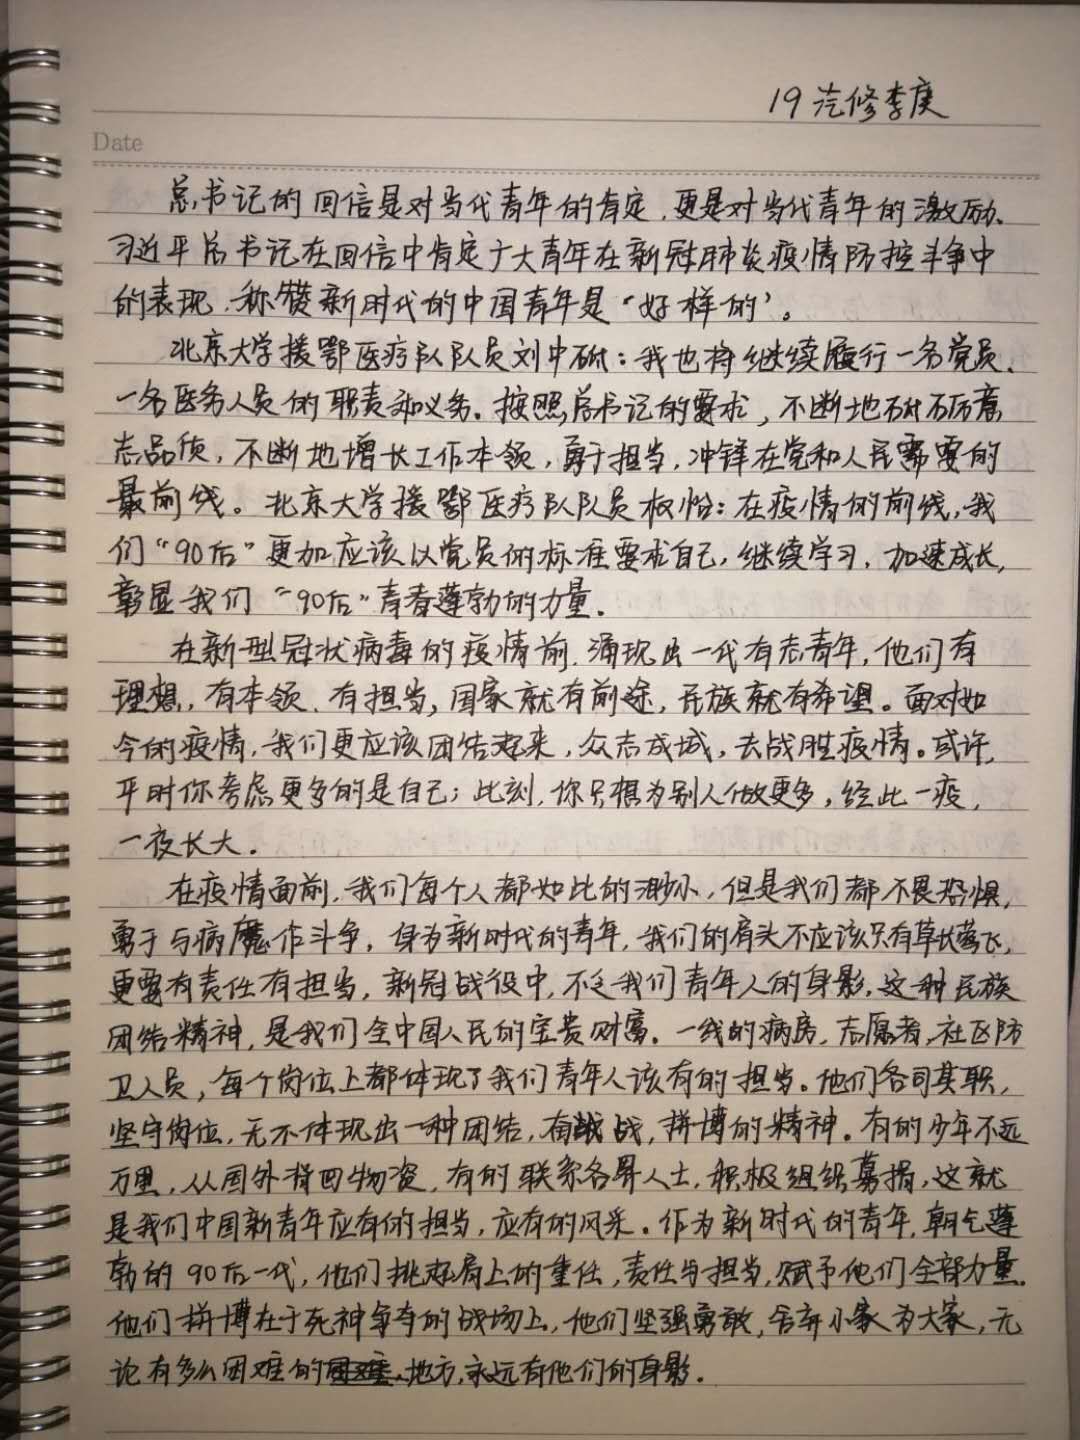 19汽修李庚
Date
总书记的回信是对当代青年的肯定,更是对当代青年的激励、
习近平总书记在回信中肯定广大青年在新冠肺炎疫情防控斗争中
的表现,称赞新时代的中国青年是“好样的”。
北京大学援鄂医疗队队员刘中砥:我也将继续履行一名党员、
一名医务人员的职责和义务。按照总书记的要求,不断地砥砺意
志品质,不断地增长工作本领,勇于担当,冲锋在党和人民需要的
最前线。北京大学援鄂医疗队队员权怡:在疫情的前线,我
们“90后”更加应该以党员的标准要求自己,继续学习,加速成长,
彰显我们“90后”青春蓬勃的力量.
在新型冠状病毒的疫情前,涌现出一代有志青年,他们有
理想,有本领、有担当,国家就有前途,民族就有希望。面对如
今的疫情,我们更应该团结起来,众志成城,去战胜疫情。或许,
平时你考虑更多的是自己;此刻,你只想为别人做更多,经此一疫,
一夜长大.
在疫情面前,我们每个人都如此的渺小,但是我们都不畏恐惧,
勇于与病魔作斗争,身为新时代的青年,我们的肩头不应该只有草长莺飞,
更要有责任有担当,新冠战役中,不乏我们青年人的身影,这种民族
团结精神,是我们全中国人民的宝贵财富.一线的病房,志愿者,社区防
卫人员,每个岗位上都体现了我们青年人该有的担当。他们各司其职,
坚守岗位,无不体现出一种团结,奋战,拼博的精神。有的少年不远
万里,从国外背回物资,有的联系各界人士,积极组织募捐,这就
是我们中国新青年应有的担当,应有的风采。作为新时代的青年,朝气蓬
勃的90后一代,他们挑起肩上的重任,责任与担当,赋予他们全部力量.
他们拼博在于死神争夺的战场上,他们坚强勇敢,舍弃小家为大家,无
论有多么困难的地方,永远有他们的身影.